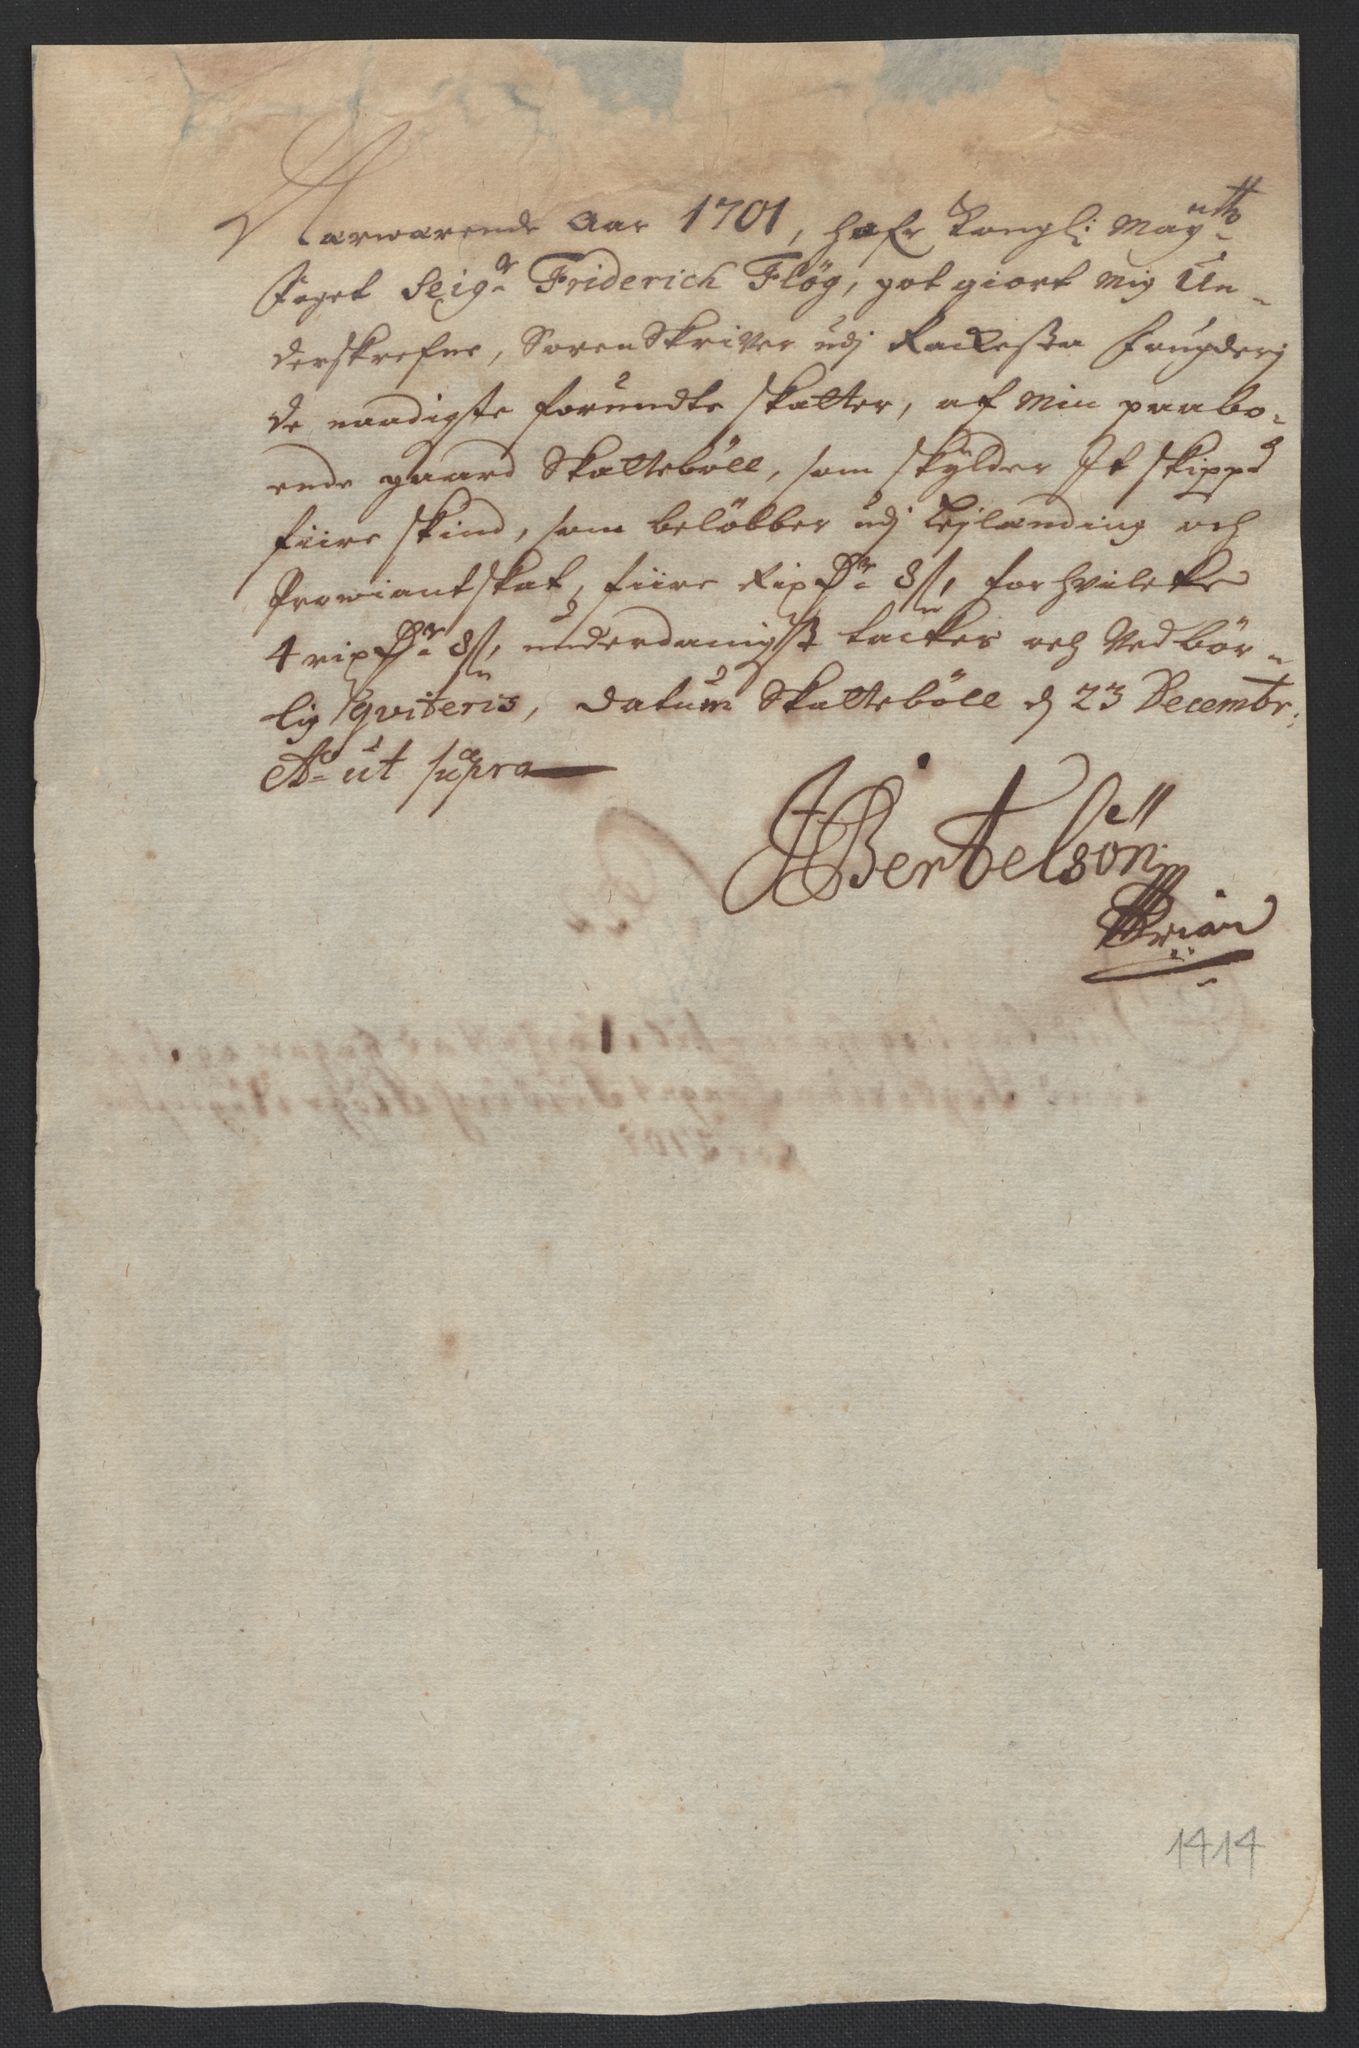 Nærwærende Aar 1701, hafr Kongli: Maÿtts
Foget Seigr Friderich Flög, got giort mig Un-
derskrefne, SorenSkriVer udj fougderj
de naadigste forundte skatter, af min paabo-
ende gaard Skalteböll, som skÿlder It skippd
fiire skind, som belöbber udj Leilænding och
Prowiantskat, fiire Rixdr 8 s, for hvilcke
4 rixdr 8 s, underdanigst tacker och Ved bör-
lig qviteris, Datum Skalteböll d 23 Decembr:
Ao ut supra
JBertelsön
1414